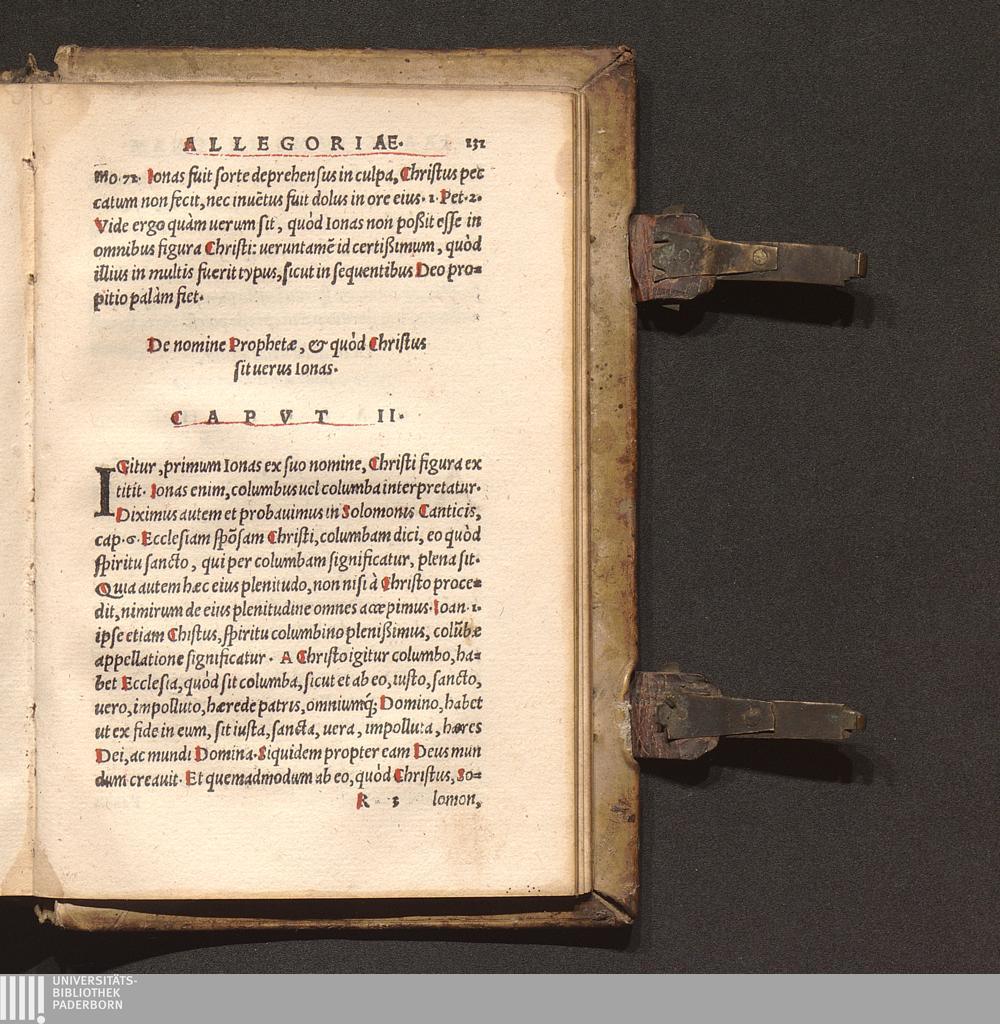 ALLEGORIAE. 131
mo.72. Ionas fuit sorte deprehensus in culpa, Christus pec
catum non fecit, nec inuẽtus fuit dolus in ore eius. 1. Pet. 2.
Vide ergo quàm uerum sit, quòd Ionas non poßit esse in
omnibus figura Christi: ueruntamẽ id certißimum, quòd
illius in multis fuerit typus, sicut in sequentibus Deo pro=
pitio palàm fiet.
De nomine Prophetæ, & quòd Christus
sit uerus Ionas.
CAPVT II.
IGitur, primum Ionas ex suo nomine, Christi figura ex
titit. Ionas enim, columbus uel columba interpretatur.
Diximus autem et probauimus in Solomonis Canticis,
cap. 6. Ecclesiam spõsam Christi, columbam dici, eo quòd
spiritu sancto, qui per columbam significatur, plena sit.
Quia autem hæc eius plenitudo, non nisi à Christo proce=
dit, nimirum de eius plenitudine omnes accepimus. Ioan. 1.
ipse etiam Chistus, spiritu columbino plenißimus, colũbæ
appellatione significatur. A Christo igitur columbo, ha=
bet Ecclesia, quòd sit columba, sicut et ab eo, iusto, sancto,
uero, impolluto, hærede patris, omniumq́; Domino, habet
ut ex fide in eum, sit iusta, sancta, uera, impolluta, hæres
Dei, ac mundi Domina. Siquidem propter eam Deus mun
dum creauit. Et quemadmodum ab eo, quòd Christus, So=
R 3 lomon,
UNIVERSITÄTS-
BIBLIOTHEK
PADERBORN